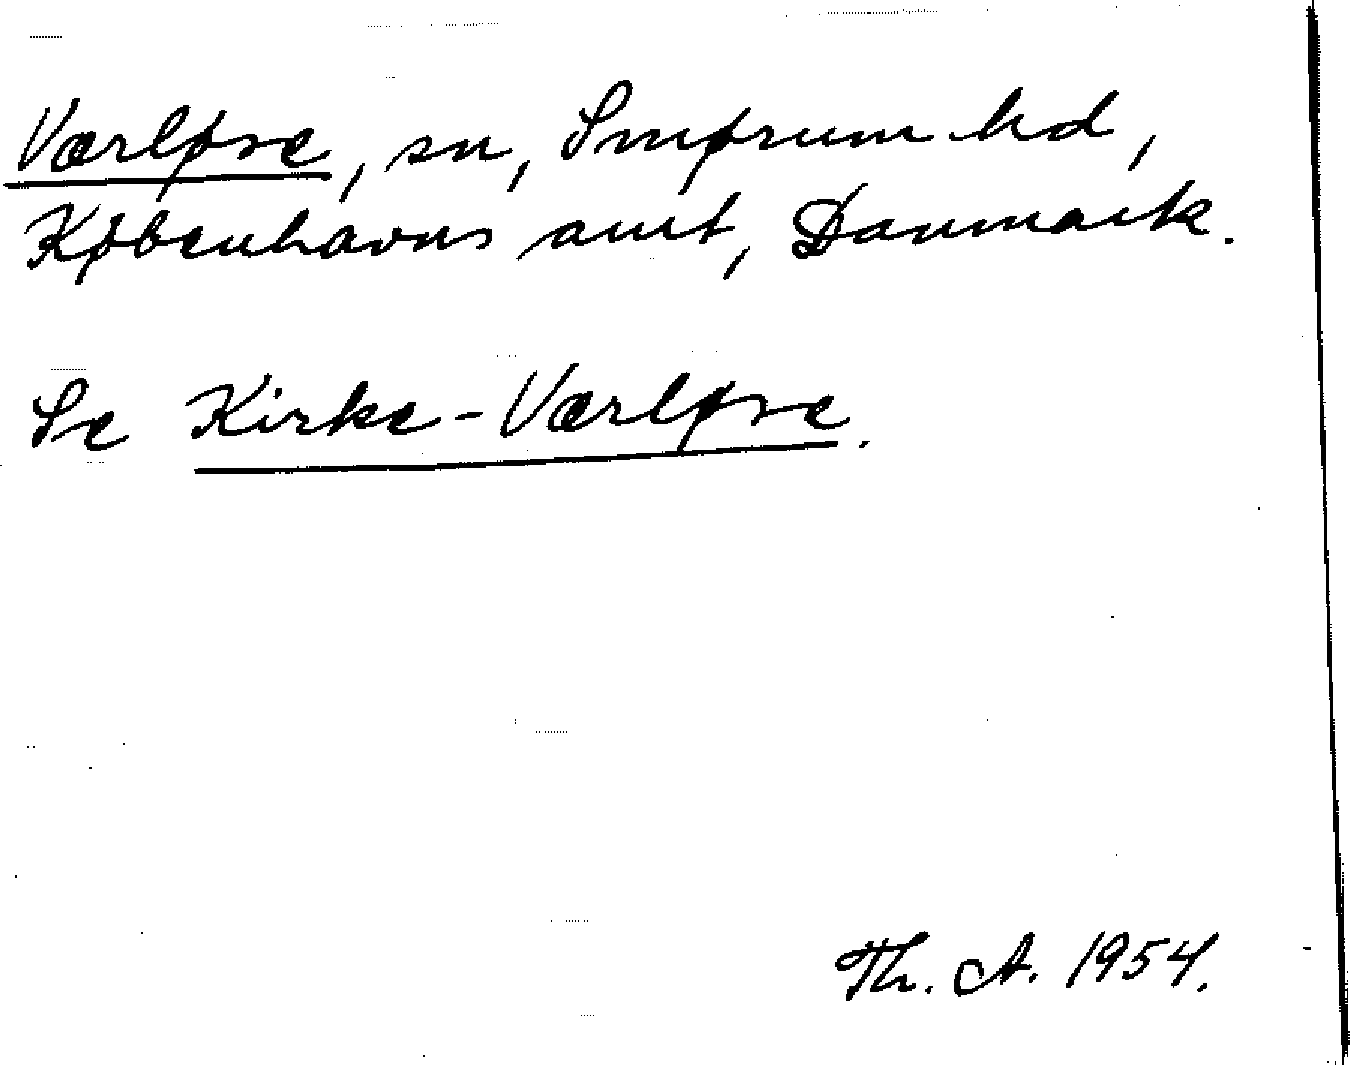 Værløse, sn, Smørum hd,
Københavns amt, Danmark.
Se Kirke-Værløse.
Th. A. 1954.